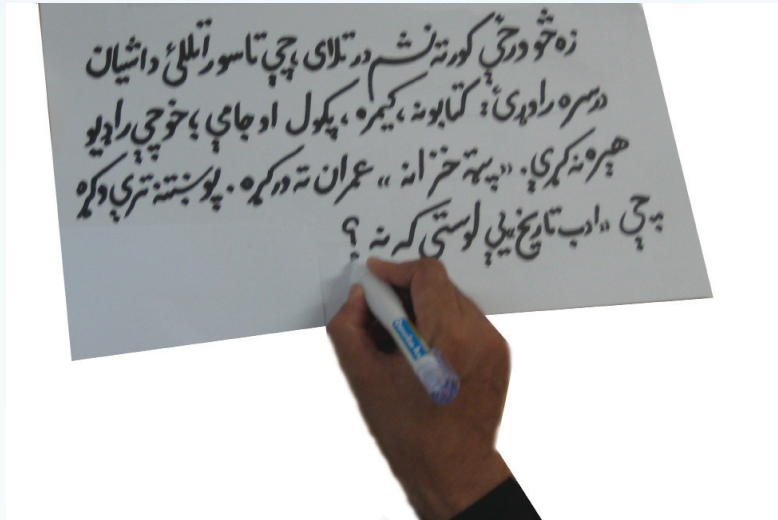 زه څو ورځې کورته نشم درتلای ، چې تاسو راتللئ دا شیان
درسره راوړئ: کتابونه ، کیمره ، پکول او جامې ؛ خو چې راډیو
هېره نه کړې. «پټه خزانه» عمران ته ورکړه . پوښتنه ترې وکړه
چې «ادب تاریخ» یې لوستی که نه ؟